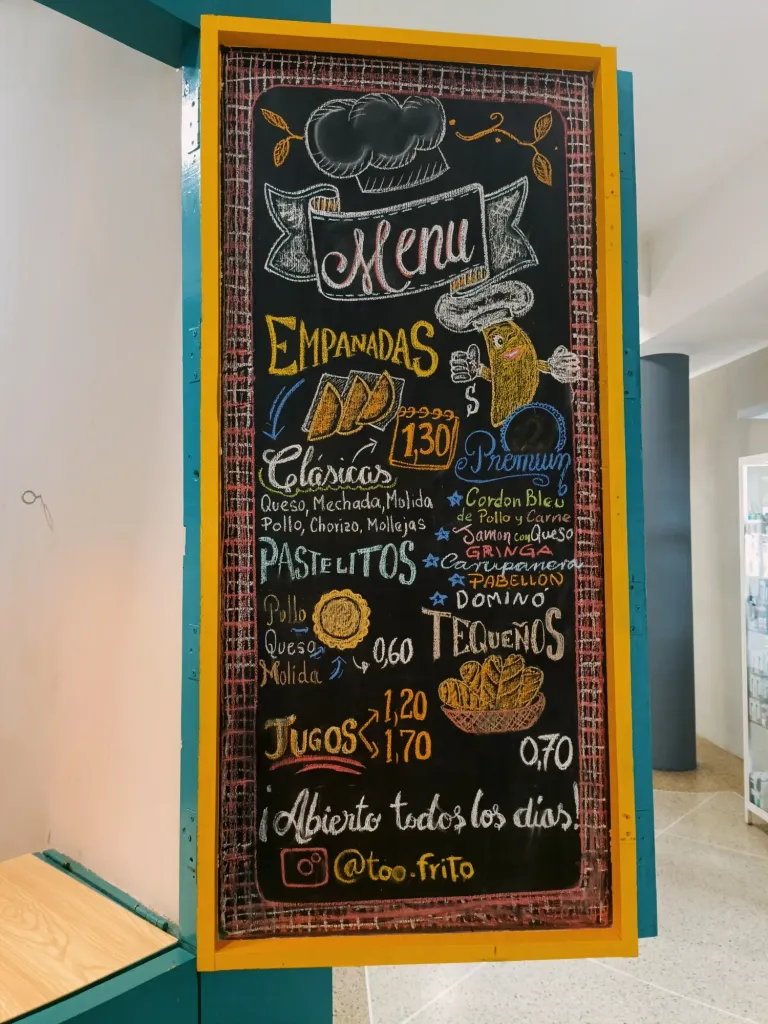 Menu
EMPANADAS
$
1,30
2
Clásicas
Queso, Mechada, Molida
Pollo, Chorizo, Mollejas
Premium
Cordon Bleu
de Pollo y Carne
Jamon con Queso
GRINGA
Carupanera
PABELLON
DOMINÓ
PASTELITOS
Pollo
Queso
Molida
0,60
TEQUEÑOS
0,70
JUGOS
1,20
1,70
¡Abierto todos los dias!
@too.frito